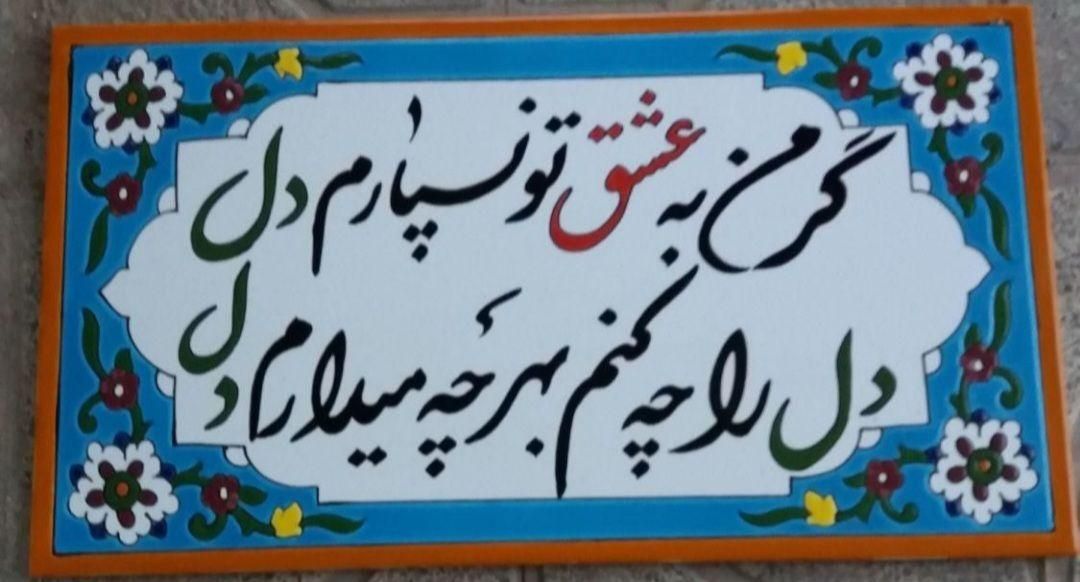 گر من به عشق تو نسپارم دل
دل را چه کنم بهر چه میدارم دل